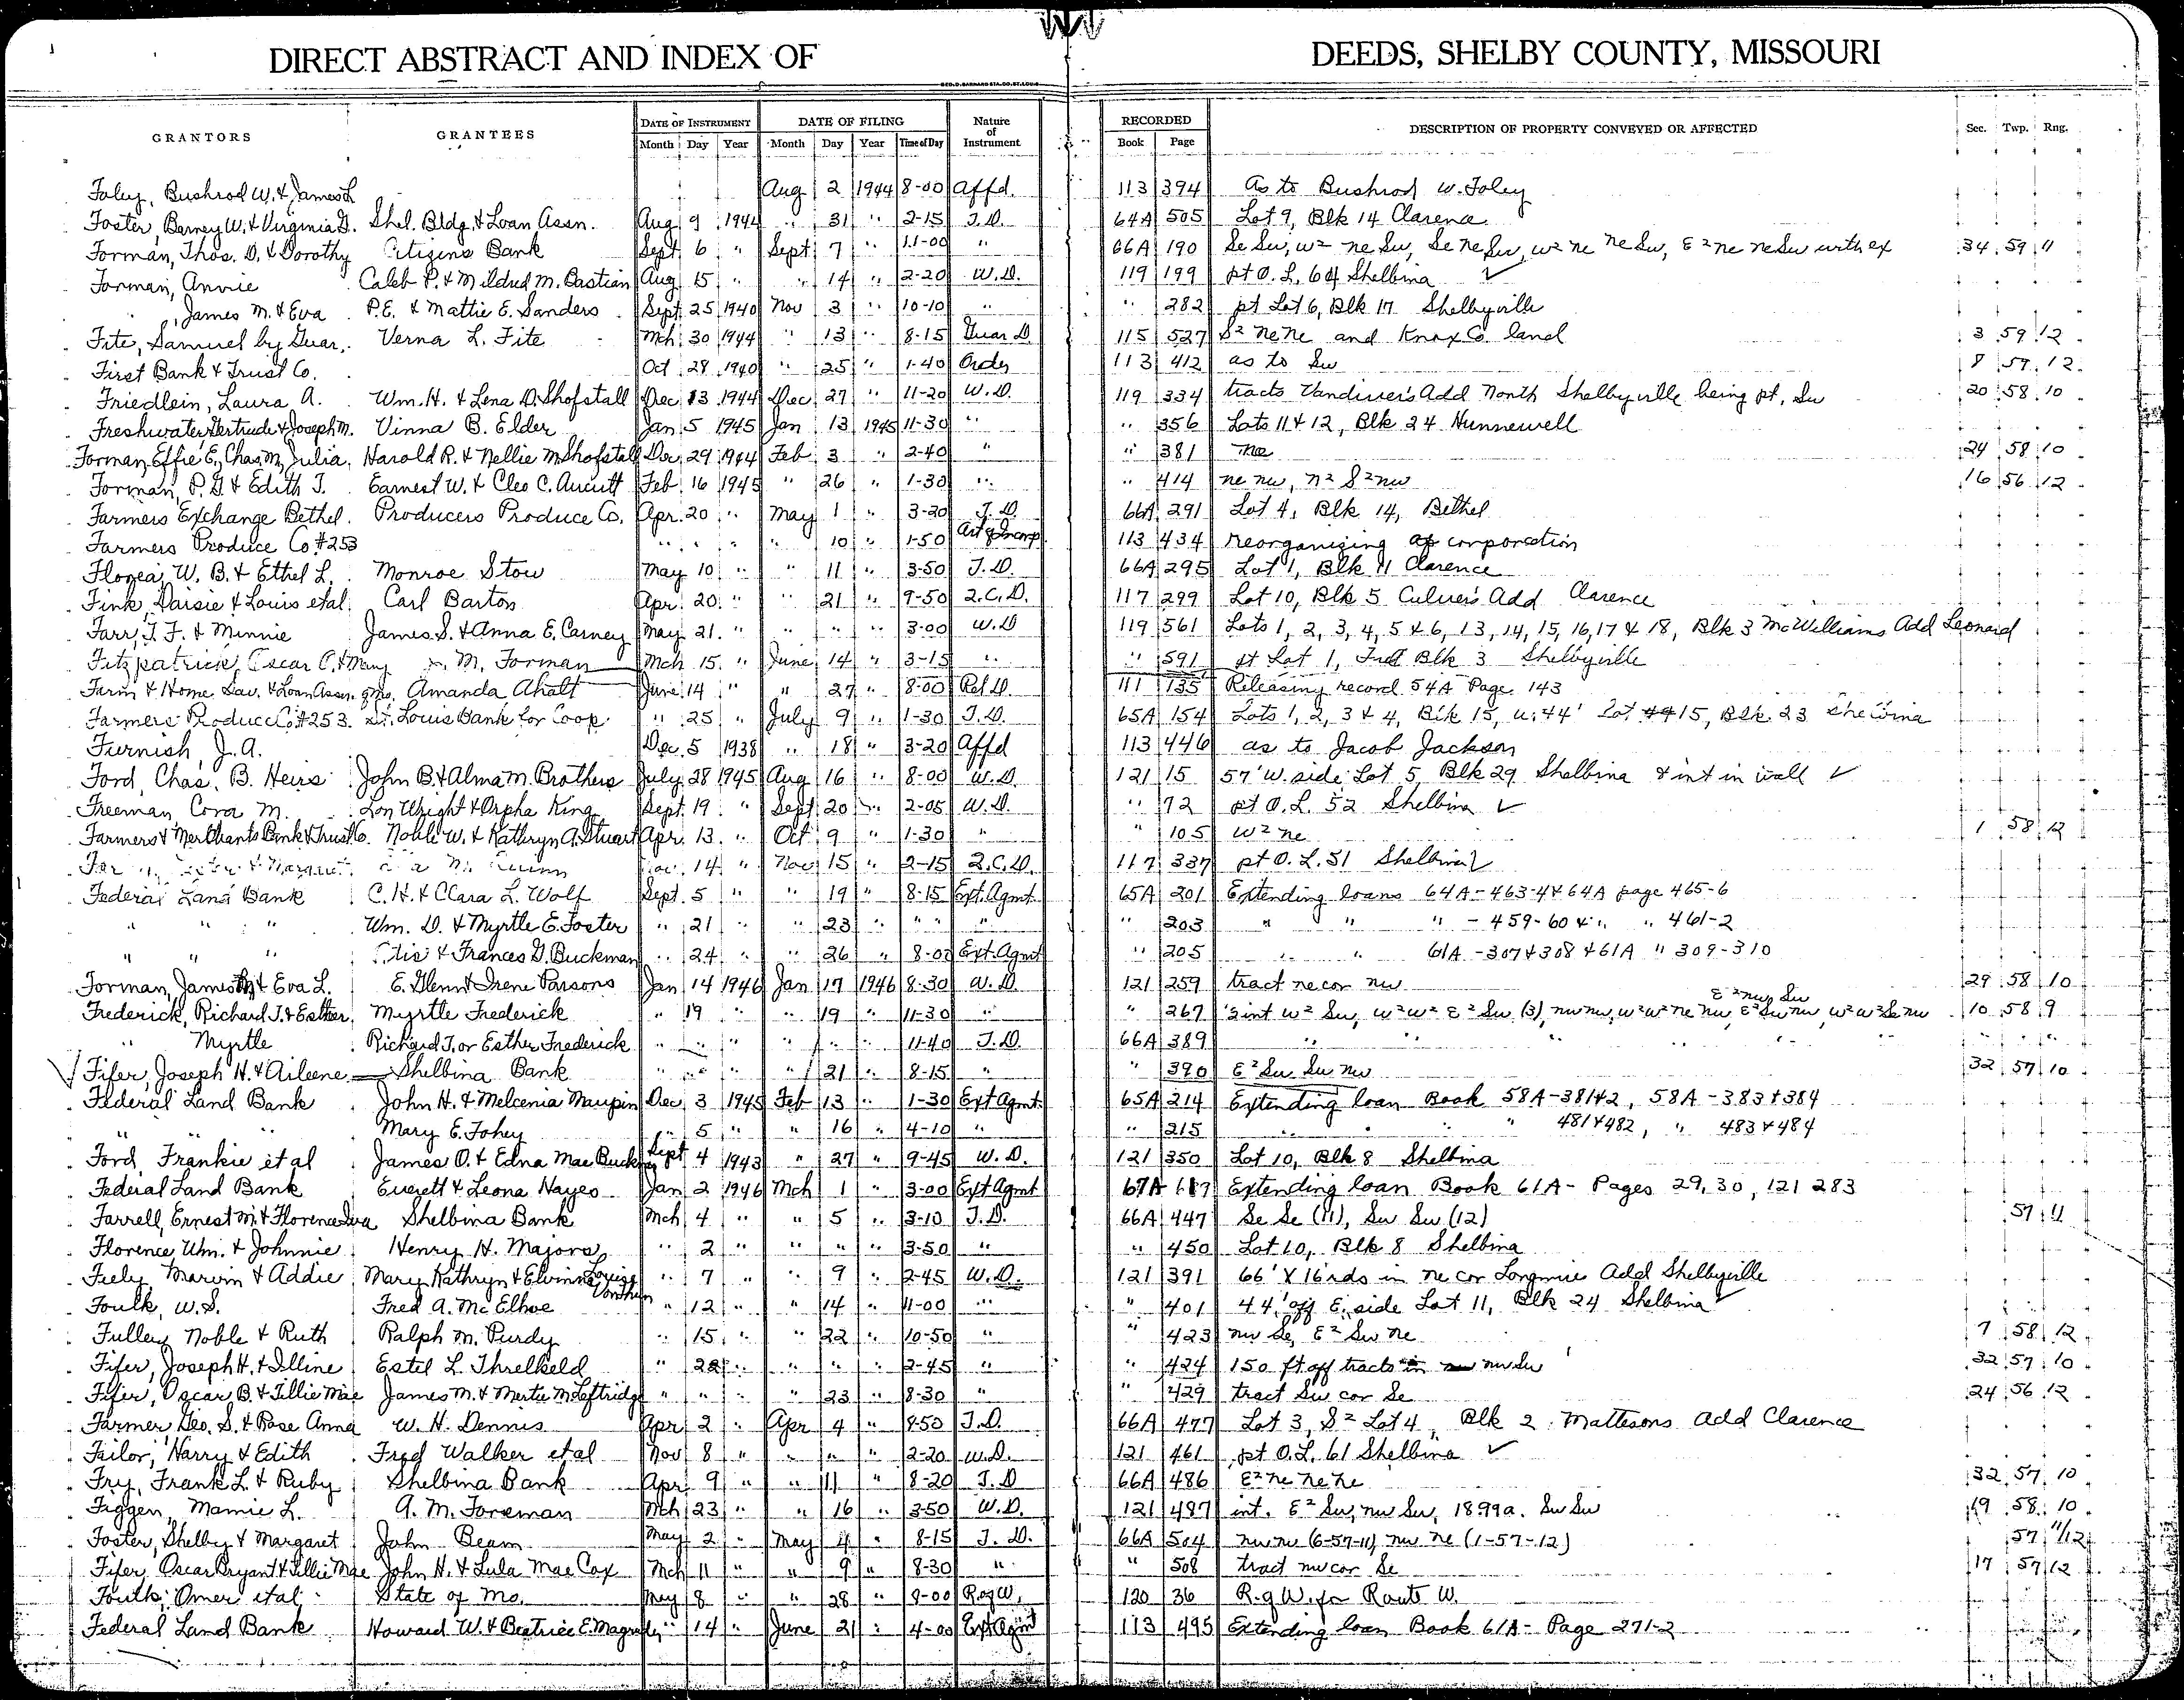 DIRECT ABSTRACT AND INDEX OF DEEDS, SHELBY COUNTY, MISSOURI
GRANTORS GRANTEES DATE OF INSTRUMENT DATE OF FILING Nature of Instrument RECORDED DESCRIPTION OF PROPERTY CONVEYED OR AFFECTED Sec. Twp. Rng.
Month Day Year Month Day Year Time of Day Book Page
Foley, Bushrod W. & James L Aug 2 1944 8-00 Affd. 113 394 As to Bushrod W. Foley
Foster, Barney W. & Virginia D. Shel. Bldg. & Loan Assn. Aug 9 1944 " 31 " 2-15 T.D. 64A 505 Lot 9, Blk 14 Clarence
Forman, Thos. D. & Dorothy Citizens Bank Sept 6 " Sept 7 " 11-00 " 66A 190 Se Sw, W² ne Sw, Se ne Sw, W² ne ne Sw, E² ne ne Sw with ex 34 59 11
Forman, Annie Caleb P. & Mildred M. Bastian Aug 15 " " 14 " 2-20 W.D. 119 199 pt O.L. 6 of Shelbina ✓
" , James M. & Eva P.E. & Mattie E. Sanders Sept 25 1940 Nov 3 " 10-10 " " 282 pt Lot 6, Blk 17 Shelbyville
Fite, Samuel by Guar. Verna L. Fite Mch 30 1944 " 13 " 8-15 Guar D. 115 527 S² ne ne and Knox Co. land 3 59 12
First Bank & Trust Co. Oct 28 1940 " 25 " 1-40 Order 113 412 as to Sw 8 57 12
Friedlein, Laura A. Wm. H. & Lena D. Shofstall Dec 13 1944 Dec 27 " 11-20 W.D. 119 334 tracts Vandiver's Add North Shelbyville being pt. Sw 20 58 10
Freshwater Gertrude & Joseph M. Vinna B. Elder Jan 5 1945 Jan 13 1945 11-30 " " 356 Lots 11 & 12, Blk 24 Hunnewell
Forman, Effie E, Chas, M, Julia. Harold R. & Nellie M Shofstall Dec 29 1944 Feb 3 " 2-40 " " 381 ne 24 58 10
Forman, P. G & Edith T. Earnest W. & Cleo C. Aucutt Feb 16 1945 " 26 " 1-30 " " 414 ne nw, n² S² nw 16 56 12
Farmers Exchange Bethel. Producers Produce Co. Apr. 20 " May 1 " 3-20 T.D. 66A 291 Lot 4, Blk 14, Bethel
Farmers Produce Co #253 " " " " 10 " 1-50 Art of Incorp 113 434 reorganizing of corporation
Florea, W. B. & Ethel L. Monroe Stow May 10 " " 11 " 3-50 T.D. 66A 295 Lot 1, Blk 11 Clarence
Fink, Daisie & Louis etal. Carl Barton Apr. 20 " " 21 " 9-50 Q.C.D. 117 299 Lot 10, Blk 5 Culver's Add Clarence
Farr, T. F. & Minnie James S. & Anna E. Carney May 21 " " " " 3-00 W.D 119 561 Lots 1, 2, 3, 4, 5 & 6, 13, 14, 15, 16, 17 & 18, Blk 3 McWilliams Add Leonard
Fitzpatrick, Oscar O. & Mary M. Forman Mch 15 " June 14 " 3-15 " " 591 pt Lot 1, Blk 3 Shelbyville
Farm & Home Sav. & Loan Assn. of Mo. Amanda Ahalt June 14 " " 27 " 8-00 Rel D. 111 135 Releasing record 54A Page 143
Farmers Produce Co #253. St. Louis Bank for Coop. " 25 " July 9 " 1-30 T.D. 65A 154 Lots 1, 2, 3 & 4, Blk 15, 44' Lot 15, Blk 23 Shelbina
Furnish, J. A. Dec. 5 1938 " 18 " 3-20 Affd 113 446 as to Jacob Jackson
Ford, Chas. B. Heirs John B. & Alma M. Brothers July 28 1945 Aug 16 " 8-00 W.D. 121 15 57' W. side Lot 5, Blk 29 Shelbina & int in wall ✓
Freeman, Cora M. Lon Wright & Orpha King Sept. 19 " Sept 20 " 2-05 W.D. " 72 pt O.L. 52 Shelbina ✓
Farmers & Merchants Bank & Trust Co. Noble W. & Kathryn A. Stuart Apr. 13 " Oct 9 " 1-30 " " 105 W² ne 1 58 12
14 " Nov 15 " 2-15 Q.C.D. 117 337 pt O.L. 51 Shelbina ✓
Federal Land Bank C. H. & Clara L. Wolf Sept. 5 " " 19 " 8-15 Ext. Agmt. 65A 201 Extending loans 64A-463-4 & 64A page 465-6
" " " Wm. D. & Myrtle E. Foster " 21 " " 23 " " " " " 203 " " " - 459-60 & " " 461-2
" " " Otis & Frances G. Buckman " 24 " " 26 " 8-00 Ext. Agmt " 205 " " 61A-307 & 308 & 61A " 309-310
Forman, James M & Eva L. E. Glenn & Irene Parsons Jan 14 1946 Jan 17 1946 8-30 W.D. 121 259 tract ne cor nw 29 58 10
Frederick, Richard T. & Esther Myrtle Frederick " 19 " " 19 " 11-30 " " 267 int W² Sw, W² W² E² Sw (3), nw nw, W² W² ne nw, E² Sw nw, W² W² Se nw E² nw Sw 10 58 9
" Myrtle Richard T. or Esther Frederick " " " " " " 11-40 T.D. 66A 389 " " " " " " "
✓ Fifer, Joseph H. & Aileene Shelbina Bank " " " " 21 " 8-15 " " 390 E² Sw Sw nw 32 57 10
Federal Land Bank John H. & Melcenia Maupin Dec 3 1945 Feb 13 " 1-30 Ext Agmt. 65A 214 Extending loan Book 58A-381&2, 58A-383&384
" " Mary E. Fohey " 5 " " 16 " 4-10 " " 215 " " " 481&482, " 483&484
Ford, Frankie et al James O. & Edna Mae Buck Sept 4 1943 " 27 " 9-45 W.D. 121 350 Lot 10, Blk 8 Shelbina
Federal Land Bank Everett & Leona Hayes Jan 2 1946 Mch 1 " 3-00 Ext Agmt 67A 617 Extending loan Book 61A- Pages 29, 30, 121 283
Farrell, Ernest M. & Florence Iva Shelbina Bank Mch 4 " " 5 " 3-10 T.D. 66A 447 Se Se (11), Sw Sw (12) 57 11
Florence, Wm. & Johnnie Henry H. Majors " 2 " " " " 3-50 " " 450 Lot 10, Blk 8 Shelbina
Feely, Marvin & Addie Mary Kathryn & Elvin " 7 " " 9 " 2-45 W.D. 121 391 66' X 16 rds in ne cor Longmire Add Shelbyville
Foulk, W. S. Fred A. McElhoe " 12 " " 14 " 11-00 " " 401 44' off E. side Lot 11, Blk 24 Shelbina ✓
Fulley, Noble & Ruth Ralph M. Purdy " 15 " " 22 " 10-50 " " 423 nw Se, E² Sw ne 7 58 12
Fifer, Joseph H. & Illine Estel L. Threlkeld " 22 " " " " 2-45 " " 424 150 ft off tracts in nw Sw 32 57 10
Fifer, Oscar B. & Tillie Mae James M. & Mertie M. Leftridge " " " " 23 " 8-30 " " 429 tract Sw cor Se 24 56 12
Farmer, Geo. S. & Rose Anna W. H. Dennis Apr 2 " Apr 4 " 8-50 T.D. 66A 477 Lot 3, S² Lot 4, Blk 2 Mattesons Add Clarence
Failor, Harry & Edith Fred Walker et al Nov 8 " " " " 2-20 W.D. 121 461 pt O.L. 61 Shelbina ✓
Fry, Frank L. & Ruby Shelbina Bank Apr 9 " " 11 " 8-20 T.D 66A 486 E² ne ne ne 32 57 10
Figgen, Mamie L. A. M. Foreman Mch 23 " " 16 " 3-50 W.D. 121 487 int. E² Sw, nw Sw, 18.99a. Sw Sw 19 58 10
Foster, Shelby & Margaret John Beam May 2 " May 4 " 8-15 T.D. 66A 504 nw nw (6-57-11) nw ne (1-57-12) 57 11/12
Fifer, Oscar Bryant & Tillie Mae John H. & Lula Mae Cox Mch 11 " " 9 " 8-30 " " 508 tract nw cor Se 17 57 12
Foulk, Omer et al State of Mo. May 8 " " 28 " 9-00 R of W. 120 36 R. of W. for Route W.
Federal Land Bank Howard W. & Beatrice E. Magruder " 14 " June 21 " 4-00 Ext Agmt 113 495 Extending loan Book 61A- Page 271-2